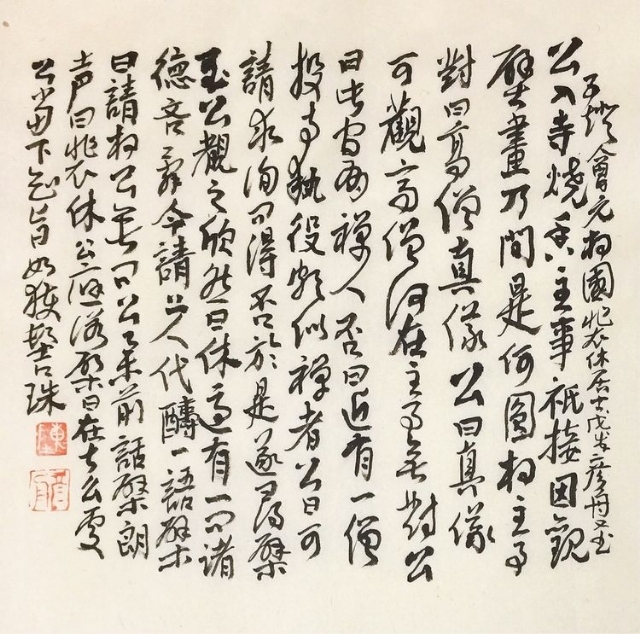 五燈會元相國裴休居士戊戌彦舟
公入寺燒香主事祇接因觀
壁畫乃問是何圖相主事
對曰高僧真儀公曰真儀
可觀高僧何在主事無對公
曰此間有禪人否曰近有一僧
投寺執役頗似禪者公曰可
請求詢問得否於是遽尋檗
至公觀之欣然曰休適有一問諸
德吝辭今請上人代酬一語檗
曰請相公垂問公舉前話檗朗
声曰裴休公應諾檗曰在什么處
公當下知旨如獲髻珠
陳